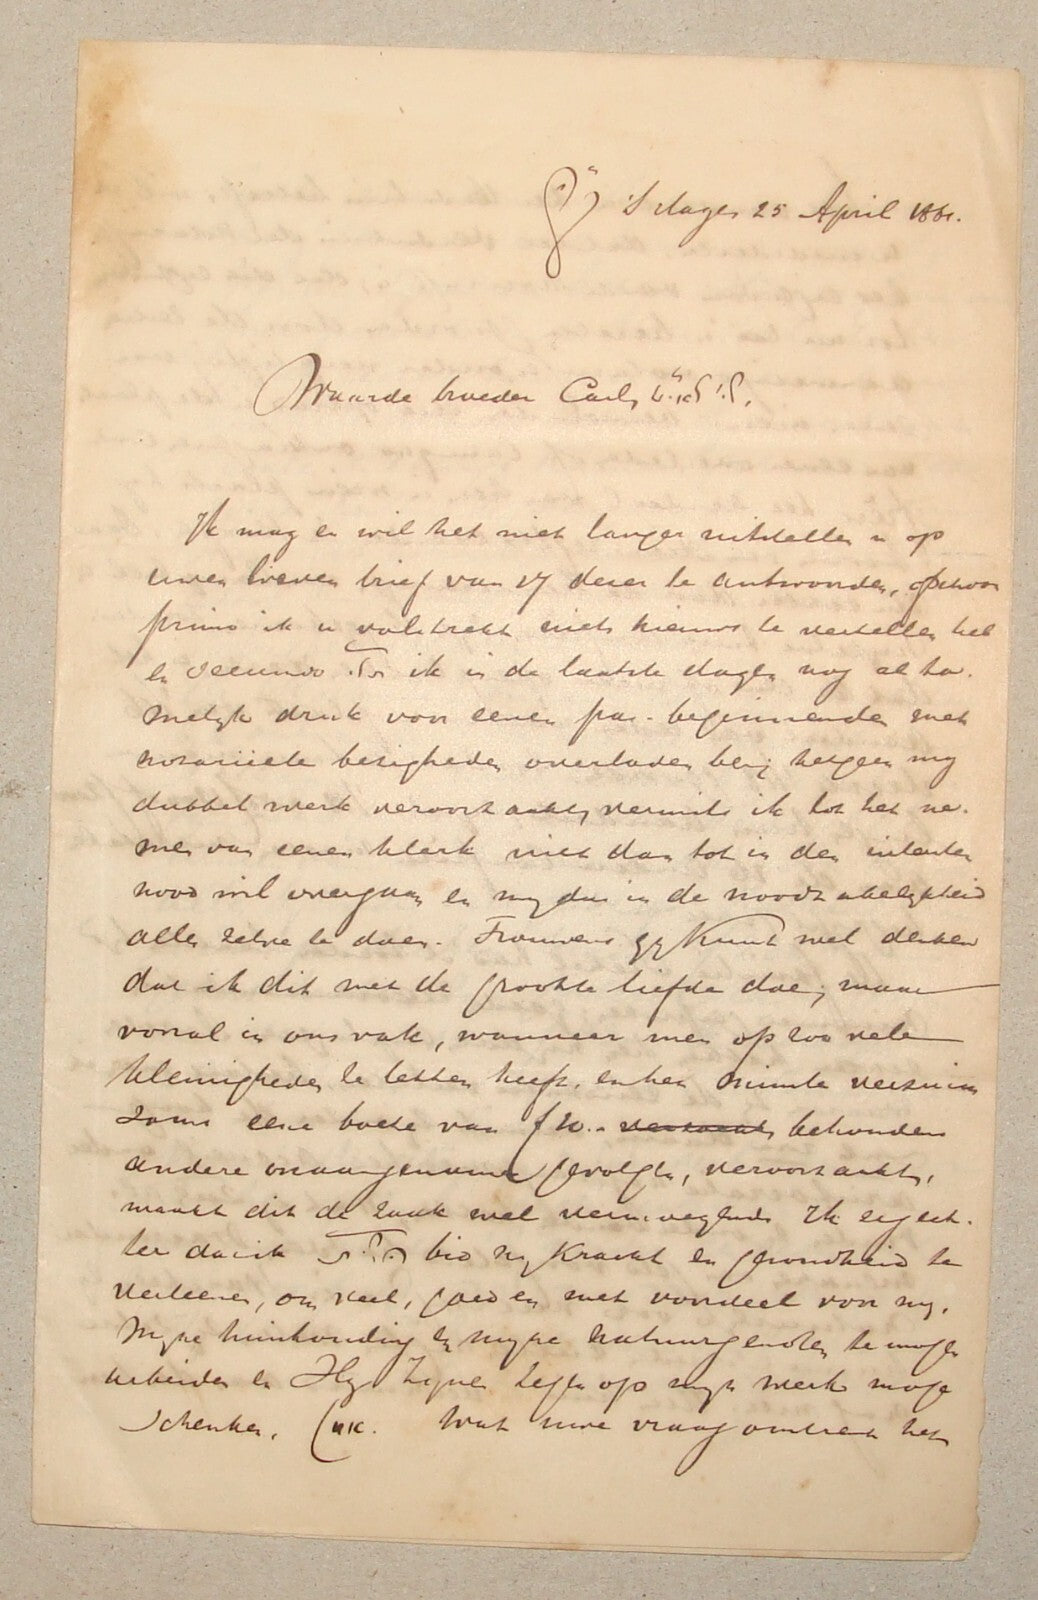 'S Hage, 25 April 186
Waarde broeder Carl,
Ik mag en wil het niet langer uitstellen u op
uwen lieven brief van 17 dezer te antwoorden, ofschoon
primo ik u volstrekt niets nieuws te vertellen heb
en secundo ik in de laatste dagen nog al ta-
melijk druk voor eenen pas-beginnenden met
notariëele bezigheden overladen ben; hetgeen mij
dubbel werk veroorzaakt, vermits ik tot het ne-
men van eenen klerk niet dan tot in den uitersten
nood wil overgaan en mij dus in de noodzakelijkheid
alles zelve te doen. Trouwens gij kunt wel denken
dat ik dit met de grootste liefde doe; maar
vooral in ons vak, wanneer men op zoo vele
kleinigheden te letten heeft, en het minste verzuim
soms eene boete van f behoudens
andere onaangename gevolgen, veroorzaakt,
maakt dit de zaak wel Ik
bid mij kracht en gezondheid te
verleenen, om veel, goed en met voordeel voor mij,
mijne huishouding en mijne natuurgenoten te mogen
arbeiden en Hij Zijnen zegen op mijn werk moge
schenken. Wat uwe vraag omtrent het